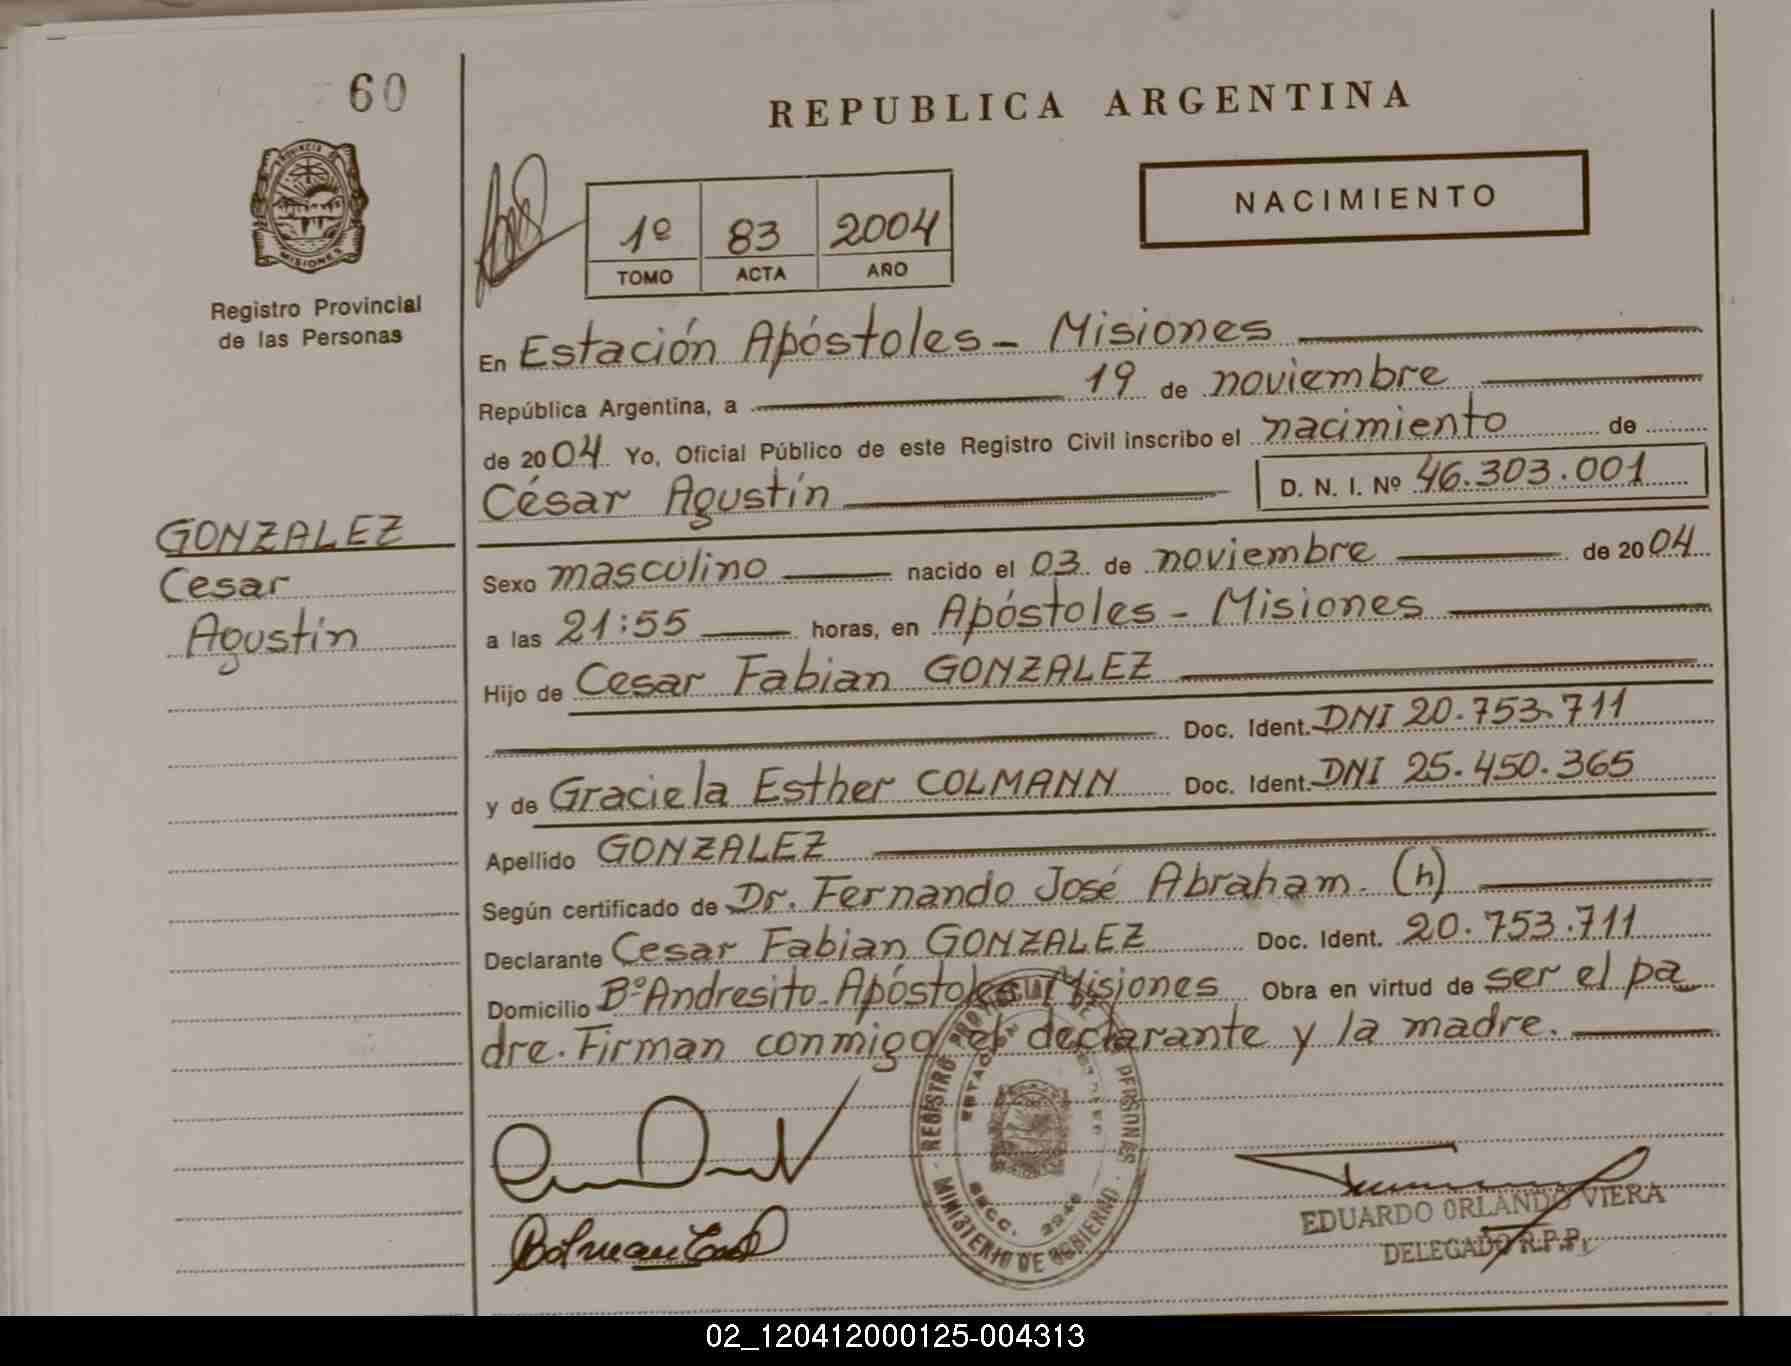 60
REPUBLICA ARGENTINA
NACIMIENTO
1º 83 2004
TOMO ACTA AÑO
MISIONES
Registro Provincial
de las Personas
En Estación Apóstoles - Misiones
República Argentina, a 19 de noviembre
de 2004 Yo, Oficial Público de este Registro Civil inscribo el nacimiento de
César Agustín D. N. I. Nº 46.303.001
GONZALEZ
Cesar
Agustín
Sexo masculino nacido el 03 de noviembre de 2004
a las 21:55 horas, en Apóstoles - Misiones
Hijo de Cesar Fabian GONZALEZ
Doc. Ident. DNI 20.753.711
y de Graciela Esther COLMANN Doc. Ident. DNI 25.450.365
Apellido GONZALEZ
Según certificado de Dr. Fernando José Abraham. (h)
Declarante Cesar Fabian GONZALEZ Doc. Ident. 20.753.711
Domicilio Bº Andresito - Apóstoles Misiones Obra en virtud de ser el pa
dre. Firman conmigo el declarante y la madre.
REGISTRO PERSONAS
MINISTERIO DE GOBIERNO
EDUARDO ORLANDO VIERA
DELEGADO R.P.P.
02_120412000125-004313